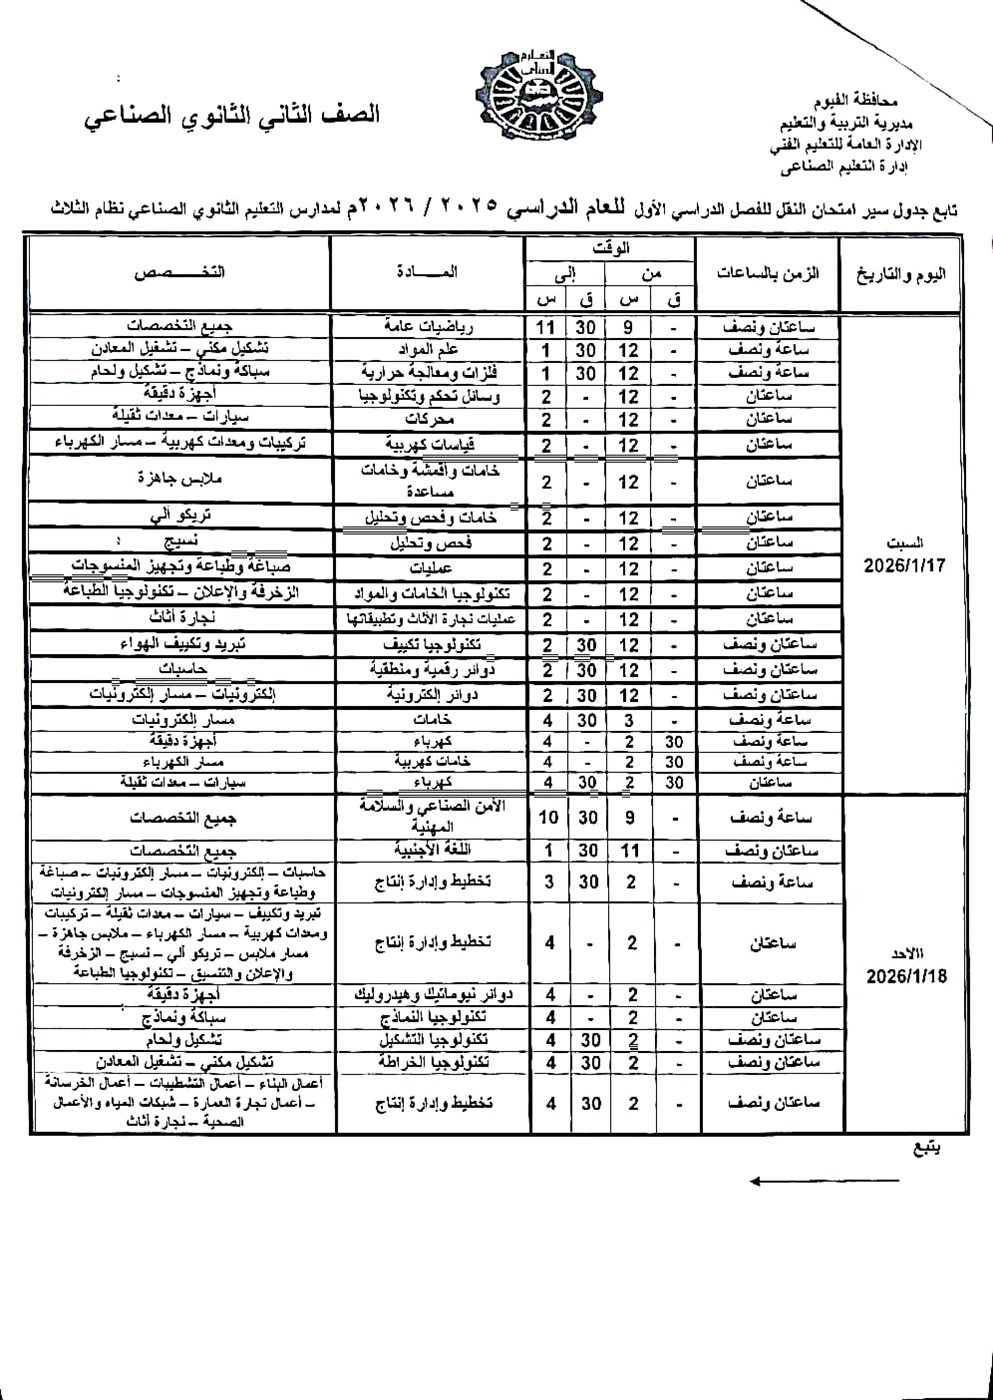 محافظة الفيوم
مديرية التربية والتعليم
الإدارة العامة للتعليم الفني
إدارة التعليم الصناعى
التعليم
الصناعى
الصف الثاني الثانوي الصناعي
تابع جدول سير امتحان النقل للفصل الدراسي الأول للعام الدراسي ٢٠٢٥ / ٢٠٢٦م لمدارس التعليم الثانوي الصناعي نظام الثلاث
اليوم والتاريخ الزمن بالساعات الوقت المـــــادة التخـــصص
من إلى
ق س ق س
السبت
2026/1/17
ساعتان ونصف - 9 30 11 رياضيات عامة جميع التخصصات
ساعة ونصف - 12 30 1 علم المواد تشكيل مكني – تشغيل المعادن
ساعة ونصف - 12 30 1 فلزات ومعالجة حرارية سباكة ونماذج – تشكيل ولحام
ساعتان - 12 - 2 وسائل تحكم وتكنولوجيا أجهزة دقيقة
ساعتان - 12 - 2 محركات سيارات – معدات ثقيلة
ساعتان - 12 - 2 قياسات كهربية تركيبات ومعدات كهربية – مسار الكهرباء
ساعتان - 12 - 2 خامات وأقمشة وخامات مساعدة ملابس جاهزة
ساعتان - 12 - 2 خامات وفحص وتحليل تريكو ألي
ساعتان - 12 - 2 فحص وتحليل نسيج
ساعتان - 12 - 2 عمليات صباغة وطباعة وتجهيز المنسوجات
ساعتان - 12 - 2 تكنولوجيا الخامات والمواد الزخرفة والإعلان – تكنولوجيا الطباعة
ساعتان - 12 - 2 عمليات نجارة الأثاث وتطبيقاتها نجارة أثاث
ساعتان ونصف - 12 30 2 تكنولوجيا تكييف تبريد وتكييف الهواء
ساعتان ونصف - 12 30 2 دوائر رقمية ومنطقية حاسبات
ساعتان ونصف - 12 30 2 دوائر إلكترونية إلكترونيات – مسار إلكترونيات
ساعة ونصف - 3 30 4 خامات مسار إلكترونيات
ساعة ونصف 30 2 - 4 كهرباء أجهزة دقيقة
ساعة ونصف 30 2 - 4 خامات كهربية مسار الكهرباء
ساعتان 30 2 30 4 كهرباء سيارات – معدات ثقيلة
الاحد
2026/1/18
ساعة ونصف - 9 30 10 الأمن الصناعي والسلامة المهنية جميع التخصصات
ساعتان ونصف - 11 30 1 اللغة الأجنبية جميع التخصصات
ساعة ونصف - 2 30 3 تخطيط وإدارة إنتاج حاسبات – إلكترونيات – مسار إلكترونيات – صباغة
وطباعة وتجهيز المنسوجات – مسار إلكترونيات
ساعتان - 2 - 4 تخطيط وإدارة إنتاج تبريد وتكييف – سيارات – معدات ثقيلة – تركيبات
ومعدات كهربية – مسار الكهرباء – ملابس جاهزة –
مسار ملابس – تريكو ألي – نسيج – الزخرفة
والإعلان والتنسيق – تكنولوجيا الطباعة
ساعتان - 2 - 4 دوائر نيوماتيك وهيدروليك أجهزة دقيقة
ساعتان - 2 - 4 تكنولوجيا النماذج سباكة ونماذج
ساعتان ونصف - 2 30 4 تكنولوجيا التشكيل تشكيل ولحام
ساعتان ونصف - 2 30 4 تكنولوجيا الخراطة تشكيل مكني – تشغيل المعادن
ساعتان ونصف - 2 30 4 تخطيط وإدارة إنتاج أعمال البناء – أعمال التشطيبات – أعمال الخرسانة
– أعمال نجارة العمارة – شبكات المياه والأعمال
الصحية – نجارة أثاث
يتبع